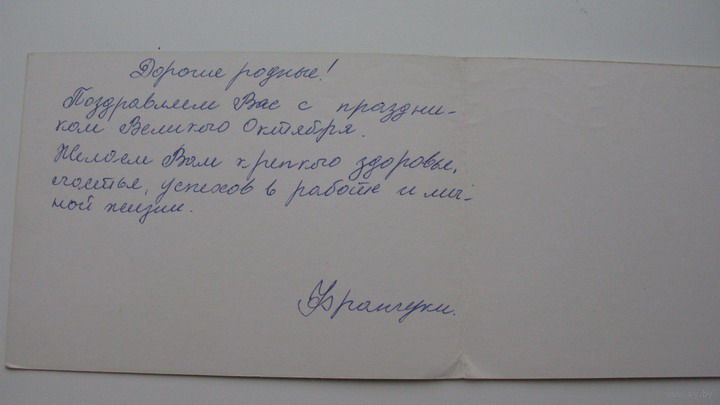 Дорогие родные!
Поздравляем Вас с праздни-
ком Великого Октября.
Желаем Вам крепкого здоровья,
счастья, успехов в работе и лич-
ной жизни.